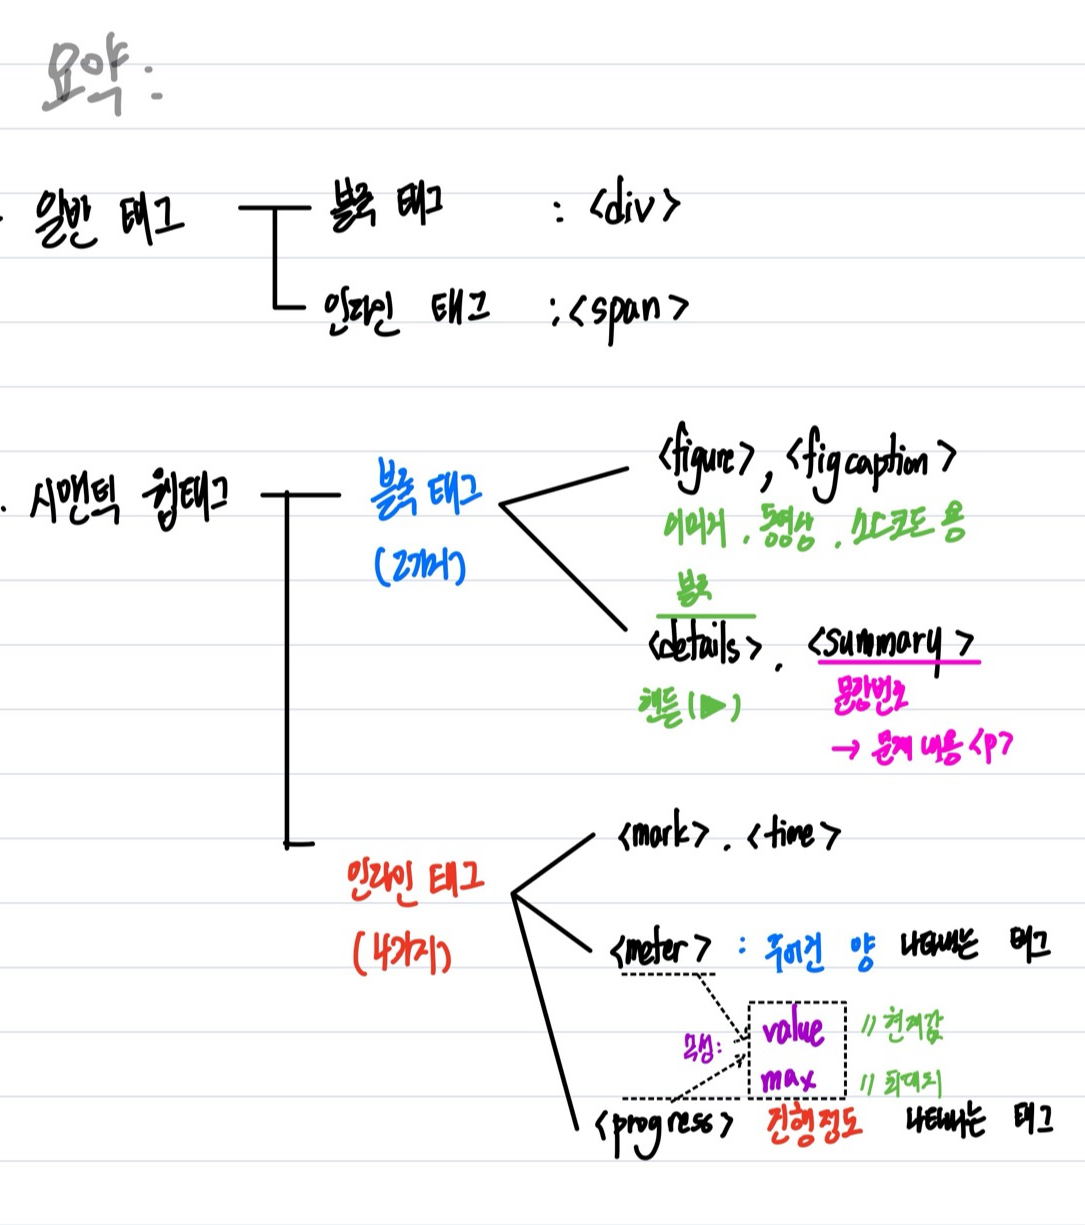 요약:
· 일반 태그
블록 태그 : <div>
인라인 태그 : <span>
· 시맨틱 웹태그
블록 태그
(2가지)
<figure>, <figcaption>
이미지, 동영상, 소스코드 용
블록
<details>, <summary>
핸들(▶)
문장번호
→ 문제 내용 <p>
인라인 태그
(4가지)
<mark>, <time>
<meter> : 주어진 양 나타내는 태그
속성:
value //현재값
max //최대치
<progress> 진행정도 나타내는 태그